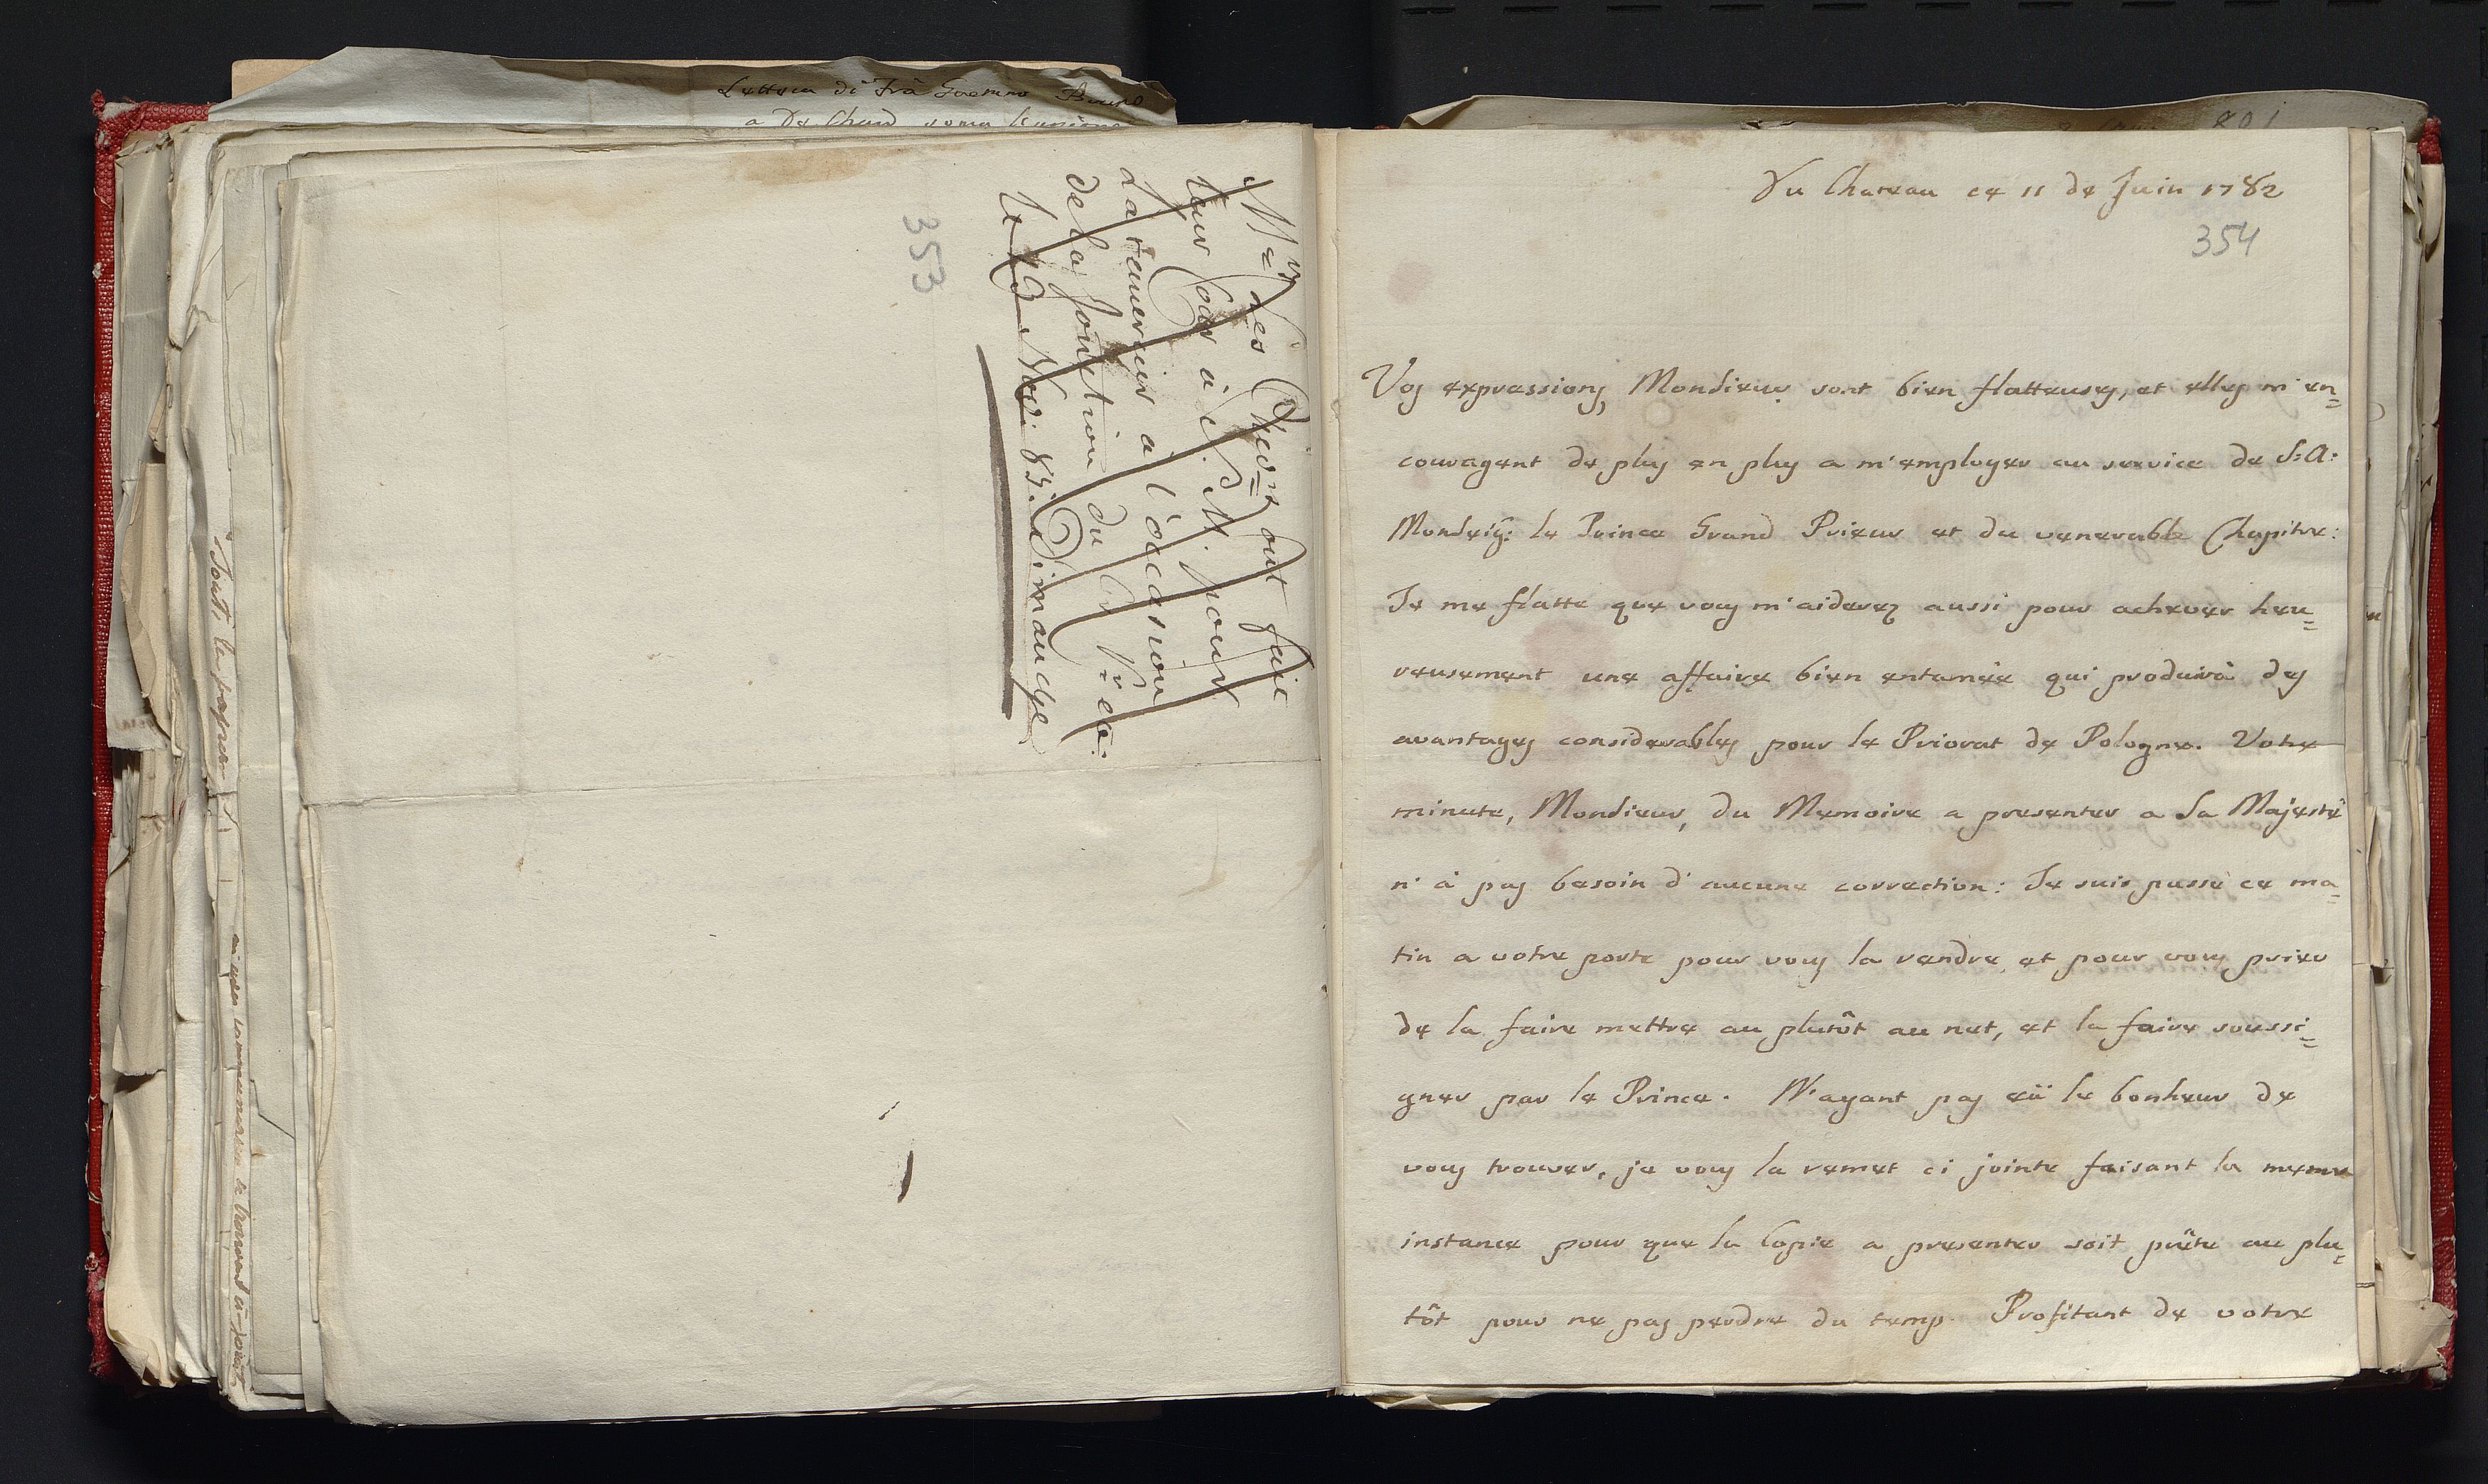 Lettera di Frà Gaetano Bruno
353
Mrs les Chevrs ont fait
leur Cour à S. M. pour
La remercier a l'occasion
de la fonction du Gr. Pr.
le 23 Nov: 83. Dimanche
Du Chateau ce 11 de Juin 1782
354
Vos expressions, Monsieur sont bien flatteuses, et elles m'en=
couragent de plus en plus a m'employer au service de S:A:
Monseig: le Prince Grand Prieur et du venerable Chapitre:
Je me flatte que vous m'aiderez aussi pour achever heu=
reusement une affaire bien entamèe qui produirà des
avantages considerables pour le Priorat de Pologne. Votre
minute, Monsieur, du Memoire a presenter a Sa Majestè
n'à pas besoin d'aucune correction: Je suis passè ce ma=
tin a votre porte pour vous la rendre, et pour vous prier
de la faire mettre au plutôt au net, et la faire soussi=
gner par le Prince. N'ayant pas eü le bonheur de
vous trouver, je vous la remet ci jointe faisant la meme
instance pour que la Copie a presenter soit prête au plu=
tôt pour ne pas perdre du temp. Profitant de votre